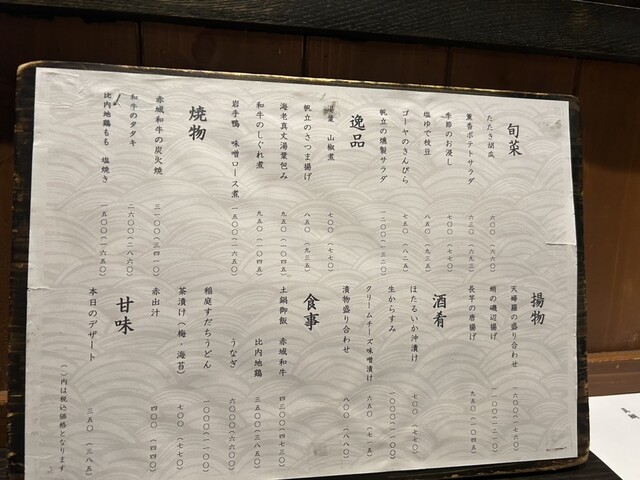 旬菜
たたき胡瓜 六〇〇（六六〇）
薫香ポテトサラダ 六三〇（六九三）
季節のお浸し 七〇〇（七七〇）
塩ゆで枝豆 八五〇（九三五）
ゴーヤのきんぴら 七五〇（八二五）
帆立の燻製サラダ 一二〇〇（一三二〇）
逸品
湯葉 山椒煮 七〇〇（七七〇）
帆立のさつま揚げ 八五〇（九三五）
海老真丈湯葉包み 九五〇（一〇四五）
和牛のしぐれ煮 九五〇（一〇四五）
岩手鴨 味噌ロース煮 一五〇〇（一六五〇）
焼物
赤城和牛の炭火焼 三一〇〇（三四一〇）
和牛のタタキ 二六〇〇（二八六〇）
比内地鶏もも 塩焼き 一五〇〇（一六五〇）
揚物
天婦羅の盛り合わせ
蛸の磯辺揚げ
長芋の唐揚げ 九五〇（一〇四五）
酒肴
ほたるいか沖漬け 七〇〇（七七〇）
生からすみ 一〇〇〇（一一〇〇）
クリームチーズ味噌漬け 六五〇（七一五）
漬物盛り合わせ 八〇〇（八八〇）
食事
土鍋御飯 赤城和牛 四三〇〇（四七三〇）
比内地鶏 三五〇〇（三八五〇）
うなぎ 六〇〇〇（六六〇〇）
稲庭すだちうどん 一〇〇〇（一一〇〇）
茶漬け（梅・海苔） 七〇〇（七七〇）
赤出汁 四〇〇（四四〇）
甘味
本日のデザート 三五〇（三八五）
（ ）内は税込価格となります